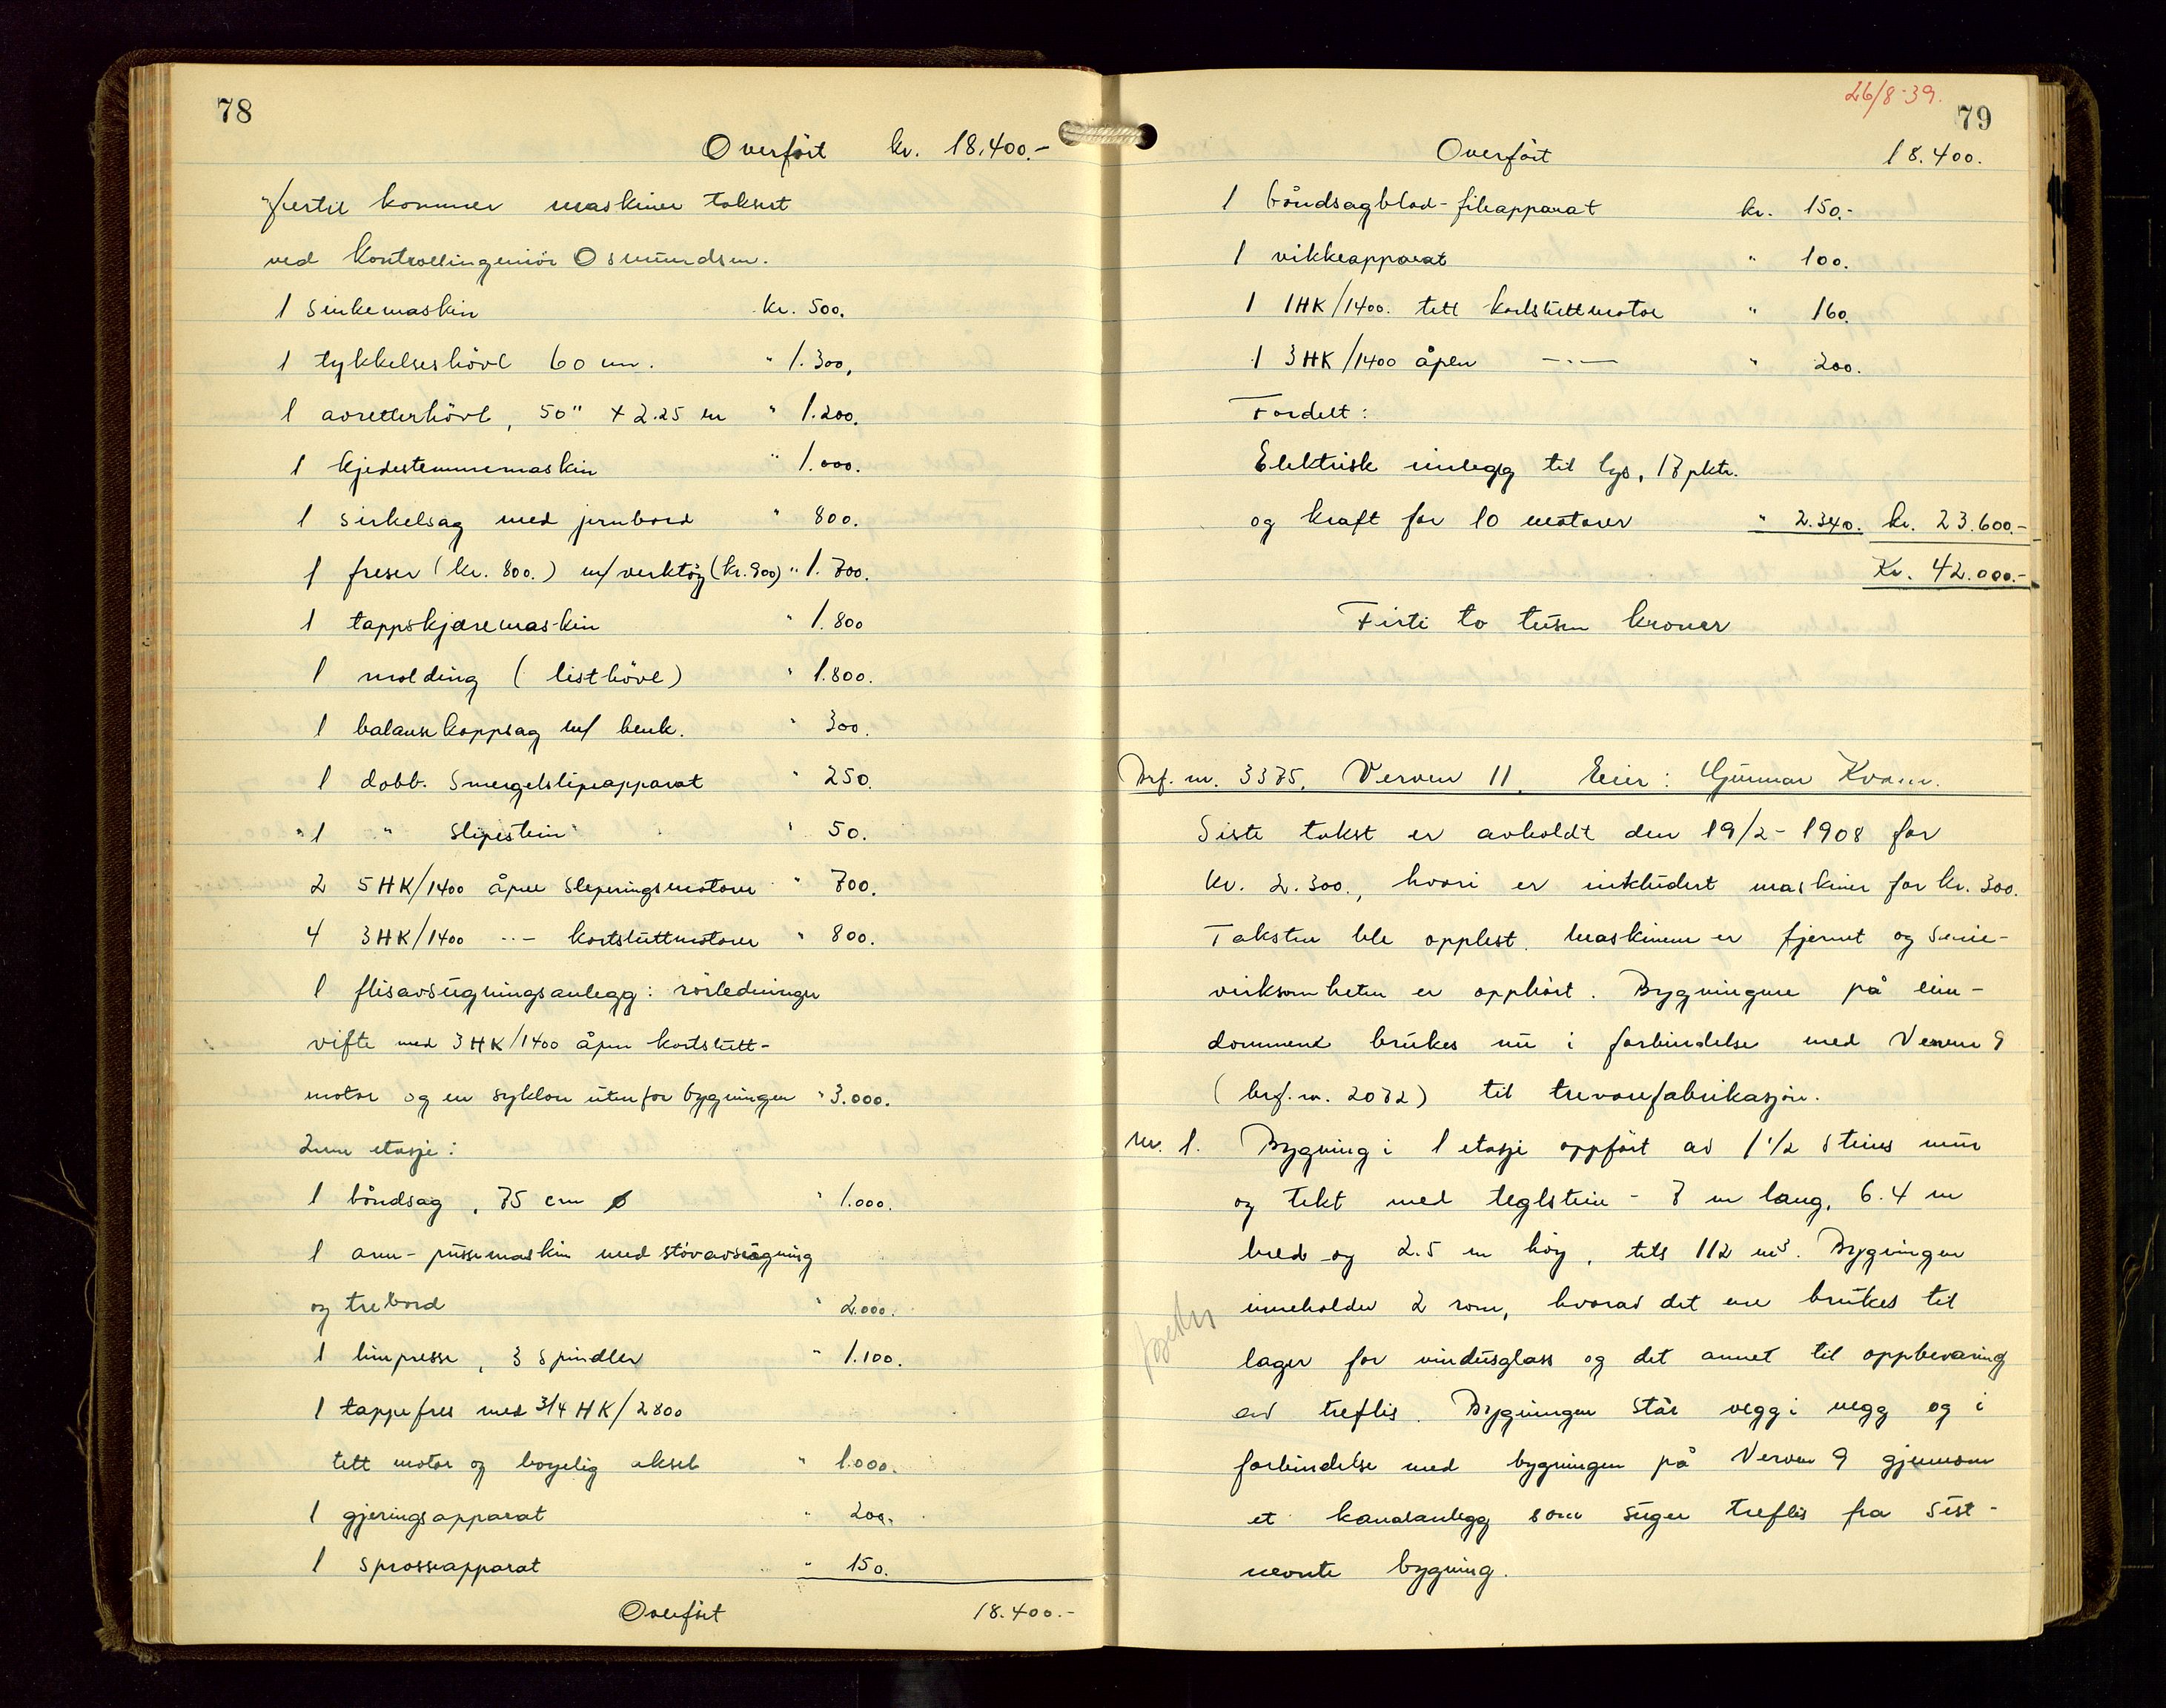 78
Overført kr. 18.400.-
hertil kommer maskiner taksert
ved Kontrollingeniør Osmundsen.
1 sinkemaskin kr. 500.
1 tykkelseshövl 60 cm. " 1.300,
1 avretterhövl, 50" + 2.25 m " 1.200.
1 kjedestemmemaskin " 1.000.
1 sirkelsag med jernbord " 800.
1 freser (kr. 800.) m/verktöy (kr. 900) " 1.700.
1 tappskjæremaskin " 1.800
1 molding (listhövl) " 1.800.
1 balansekappsag m/ benk. " 300.
1 dobb. Smergelslipeapparat " 250.
" 1 " Slipestein " 50.
2 5 HK/1400 åpne Sleperingsmotorer " 700.
4 3 HK/1400 -"- kortsluttmotorer " 800.
1 flisavsugningsanlegg: rörledninger
vifte med 3 HK/1400 åpen kortslutt-
motor og en syklon utenfor bygningen " 3.000.
2nen etasje:
1 båndsag, 75 cm ø " 1.000.
1 arm-pussemaskin med stövavsugning
og trebord " 2.000.
1 limpresse, 3 Spindler " 1.100.
1 tappefres med 3/4 HK/2800
tett motor og böyelig aksel " 1.000.
1 gjeringsapparat " 200.
1 sprosseapparat " 150.
Overfört 18.400.-
26/8-39.
79
Overfört 18.400.
1 båndsagblad-fileapparat kr. 150.-
1 vikkeapparat " 100.
1 1 HK/1400. tett kortsluttmotor " 160.
1 3 HK/1400 åpen -"- " 200.
Fordelt:
Elektrisk innlegg til lys, 17 pktr.
og kraft for 10 motorer " 2.340. kr. 23.600.-
Kr. 42.000.-
Firti to tusen kroner
Brf. nr. 3375, Verven 11. Eier: Gunnar Kvam.
Siste takst er avholdt den 19/2-1908 for
kr. 2.300., hvori er inkludert maskiner for kr. 300.
Taksten ble opplest. Maskinene er fjernet og
virksomheten er opphört. Bygningene på eien-
dommene brukes nu i forbindelse med Verven 9
(brf. nr. 2072) til trevarefabrikasjon.
Nr. 1. Bygning i 1 etasje oppfört av 1 1/2 Stens mur
og tekt med teglstein - 7 m lang, 6.4 m
bred og 2.5 m höy, tils 112 m³. Bygningen
inneholder 2 rom, hvorav det ene brukes til
lager for vindusglass og det annet til oppbevaring
av treflis. Bygningen står vegg i vegg og i
forbindelse med bygningen på Verven 9 gjennom
et kanalanlegg som suger treflis fra sist-
nevnte bygning.